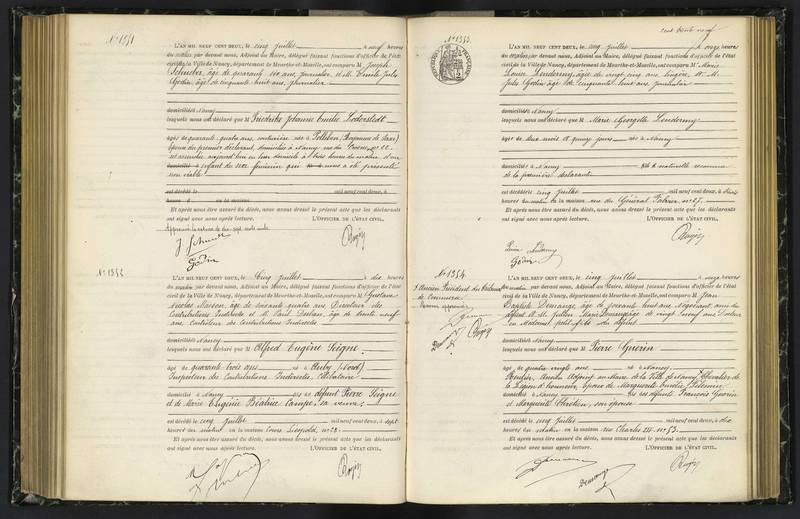 N° 1351
L'AN MIL NEUF CENT DEUX, le cinq juillet à neuf heures
du matin par devant nous, Adjoint au Maire, délégué faisant fonctions d'officier de l'état
civil de la Ville de Nancy, département de Meurthe-et-Moselle, ont comparu M Joseph
âgé de quarante six ans, journalier, et M. Emile Jules
Godin, âgé de cinquante huit ans, journalier
domiciliés à Nancy
lesquels nous ont déclaré que M Friedrike Johanne Emilie
âgée de quarante quatre ans, couturière née à (Royaume de Saxe)
épouse du premier déclarant, domiciliée à Nancy rue du n° 22
est accouchée aujourd'hui en leur domicile à trois heures du matin d'un
enfant du sexe féminin qui nous a été présenté
non viable
est décédé le mil neuf cent deux, à
heures d en la maison
Et après nous être assuré du décès, nous avons dressé le présent acte que les déclarants
ont signé avec nous après lecture. L'OFFICIER DE L'ÉTAT CIVIL,
Approuvé la rature de dix-sept mots nuls
Godin
N° 1352
L'AN MIL NEUF CENT DEUX, le Cinq juillet à dix heures
du matin, par devant nous, Adjoint au Maire, délégué faisant fonctions d'officier de l'état
civil de la Ville de Nancy, département de Meurthe-et-Moselle, ont comparu M Gustave
Nicolas Masson, âgé de soixante quatre ans Directeur des
Contributions Indirectes et M. Paul âgé de trente neuf
ans, Contrôleur des Contributions Indirectes
domiciliés à Nancy
lesquels nous ont déclaré que M Alfred Eugène Seigne
âgé de quarante trois ans né à Auby (Nord)
Inspecteur des Contributions Indirectes, Célibataire
domicilié à Nancy fils de défunt Pierre Seigne
et de Marie Eugénie Béatrice Campe, sa veuve
est décédé le cinq juillet mil neuf cent deux, à sept
heures du matin en la maison Cours Léopold, n° 28
Et après nous être assuré du décès, nous avons dressé le présent acte que les déclarants
ont signé avec nous après lecture. L'OFFICIER DE L'ÉTAT CIVIL,
cent trente neuf
N° 1353
L'AN MIL NEUF CENT DEUX, le cinq juillet à onze heures
du matin par devant nous, Adjoint au Maire, délégué faisant fonctions d'officier de l'état
civil de la Ville de Nancy, département de Meurthe-et-Moselle, ont comparu M Marie
Louise âgée de vingt cinq ans, lingère, et M.
Jules Godin âgé de cinquante huit ans, journalier
domiciliés à Nancy
lesquels nous ont déclaré que M Marie Georgette
âgée de deux mois et quinze jours née à Nancy
domiciliée à Nancy fille naturelle reconnue
de la première déclarante
est décédée le cinq juillet mil neuf cent deux, à
heures du matin en la maison rue du Général Fabvier, n° 27
Et après nous être assuré du décès, nous avons dressé le présent acte que les déclarants
ont signé avec nous après lecture. L'OFFICIER DE L'ÉTAT CIVIL,
Godin
N° 1354
L'AN MIL NEUF CENT DEUX, le cinq juillet à onze heures
du matin, par devant nous, Adjoint au Maire, délégué faisant fonctions d'officier de l'état
civil de la Ville de Nancy, département de Meurthe-et-Moselle, ont comparu M Jean
Baptiste Demange âgé de soixante huit ans, Négociant, ami du
défunt et M. Julien Marie Demange âgé de vingt neuf ans Docteur
en Médecine, petit fils du défunt
domiciliés à Nancy
lesquels nous ont déclaré que M Pierre Guerin
âgé de quatre vingts ans né à Nancy
Rentier, Ancien Adjoint au Maire de la Ville de Nancy, Chevalier de
la Légion d'honneur, époux de Marguerite
domicilié à Nancy fils des défunts François Guerin
et Marguerite Chrétien, son épouse
est décédé le cinq juillet mil neuf cent deux, à dix
heures du matin en la maison rue Charles III, n° 53
Et après nous être assuré du décès, nous avons dressé le présent acte que les déclarants
ont signé avec nous après lecture. L'OFFICIER DE L'ÉTAT CIVIL,
Ancien Président du Tribunal
de Commerce
Demange